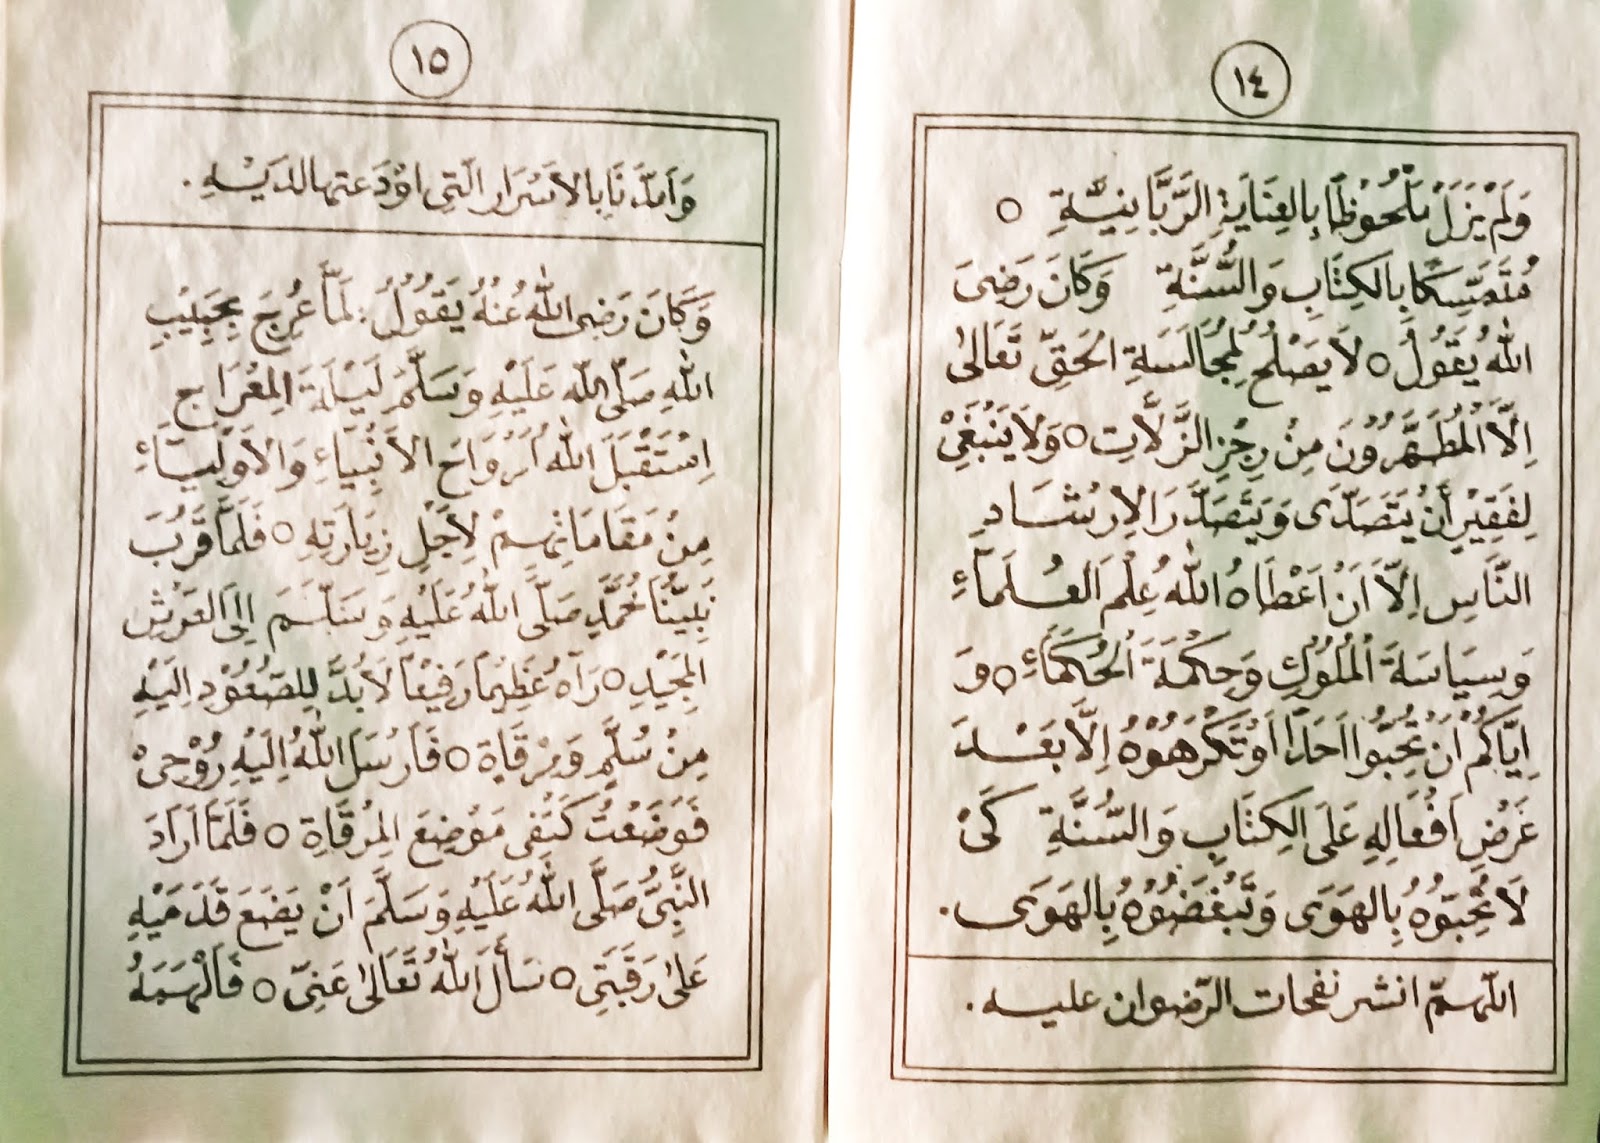 ١٤
وَلَمْ يَزَلْ مَلْحُوْظًا بِالعِنَايَةِ الرَّبَّانِيَّةِ ○
مُتَمَسِّكًا بِالكِتَابِ وَالسُّنَّةِ وَكَانَ رَضِىَ
اللهُ يَقُوْلُ ○ لَا يَصْلُحُ لِمُجَالَسَةِ الحَقِّ تَعَالىٰ
اِلَّا الْمُطَهَّرُوْنَ مِنْ رِجْزِ الزَّلَّاتِ ○ وَلَا يَنْبَغِيْ
لِفَقِيْرٍ أَنْ يَتَصَدَّى وَيَتَصَدَّرَ الِارْشَادِ
النَّاسِ اِلَّا اَنْ اَعْطَاهُ اللهُ عِلْمَ العُلَمَآءِ
وَسِيَاسَةَ الْمُلُوْكِ وَحِكْمَةَ الْحُكَمَآءِ ○ وَ
اِيَّاكُمْ اَنْ تُحِبُّوا اَحَدًا اَوْ تَكْرَهُوْهُ اِلَّا بَعْدَ
عَرْضِ اَفْعَالِهِ عَلَى الكِتَابِ وَالسُّنَّةِ كَىْ
لَا تُحِبُّوْهُ بِالهَوَى وَتَبْغَضُوْهُ بِالهَوَى.
اللّٰهمّ انشر نفحات الرّضوان عليه.
١٥
وَاَمِدَّنَا بِالاَسْرَارِ الَّتِى اَوْدَعْتَهَا لَدَيْهِ.
وَكَانَ رَضِىَ اللهُ عَنْهُ يَقُوْلُ: لَمَّا عُرِجَ بِحَبِيْبِ
اللهِ صَلَّى اللهُ عَلَيْهِ وَسَلَّمَ لَيْلَةَ المِعْرَاجِ
اِسْتَقْبَلَ اللهُ اَرْوَاحَ الاَنْبِيَاءِ وَالاَوْلِيَآءِ
مِنْ مَقَامَاتِهِمْ لِاَجْلِ زِيَارَتِهِ ○ فَلَمَّا قَرُبَ
نَبِيُّنَا مُحَمَّدٌ صَلَّى اللهُ عَلَيْهِ وَسَلَّمَ اِلَى العَرْشِ
المَجِيْدِ ○ رَآهُ عَظِيْمًا رَفِيْعًا لَا بُدَّ لِلصُّعُوْدِ اِلَيْهِ
مِنْ سُلَّمٍ وَمِرْقَاةٍ ○ فَاَرْسَلَ اللهُ اِلَيْهِ رُوْحِىْ
فَوَضَعْتُ كَتِفِى مَوْضِعَ المِرْقَاةِ ○ فَلَمَّا اَرَادَ
النَّبِىُّ صَلَّى اللهُ عَلَيْهِ وَسَلَّمَ اَنْ يَضَعَ قَدَمَيْهِ
عَلىٰ رَقَبَتِى ○ سَأَلَ اللهَ تَعَالىٰ عَنِّى ○ فَاَلْهَمَهُ